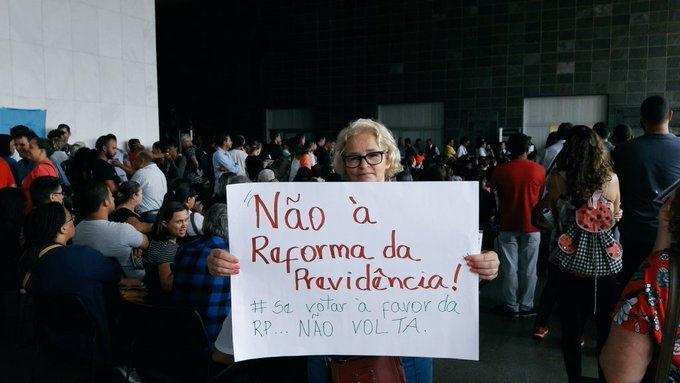 "Não à
Reforma da
Previdência!
# Se votar à favor da
RP... NÃO VOLTA.